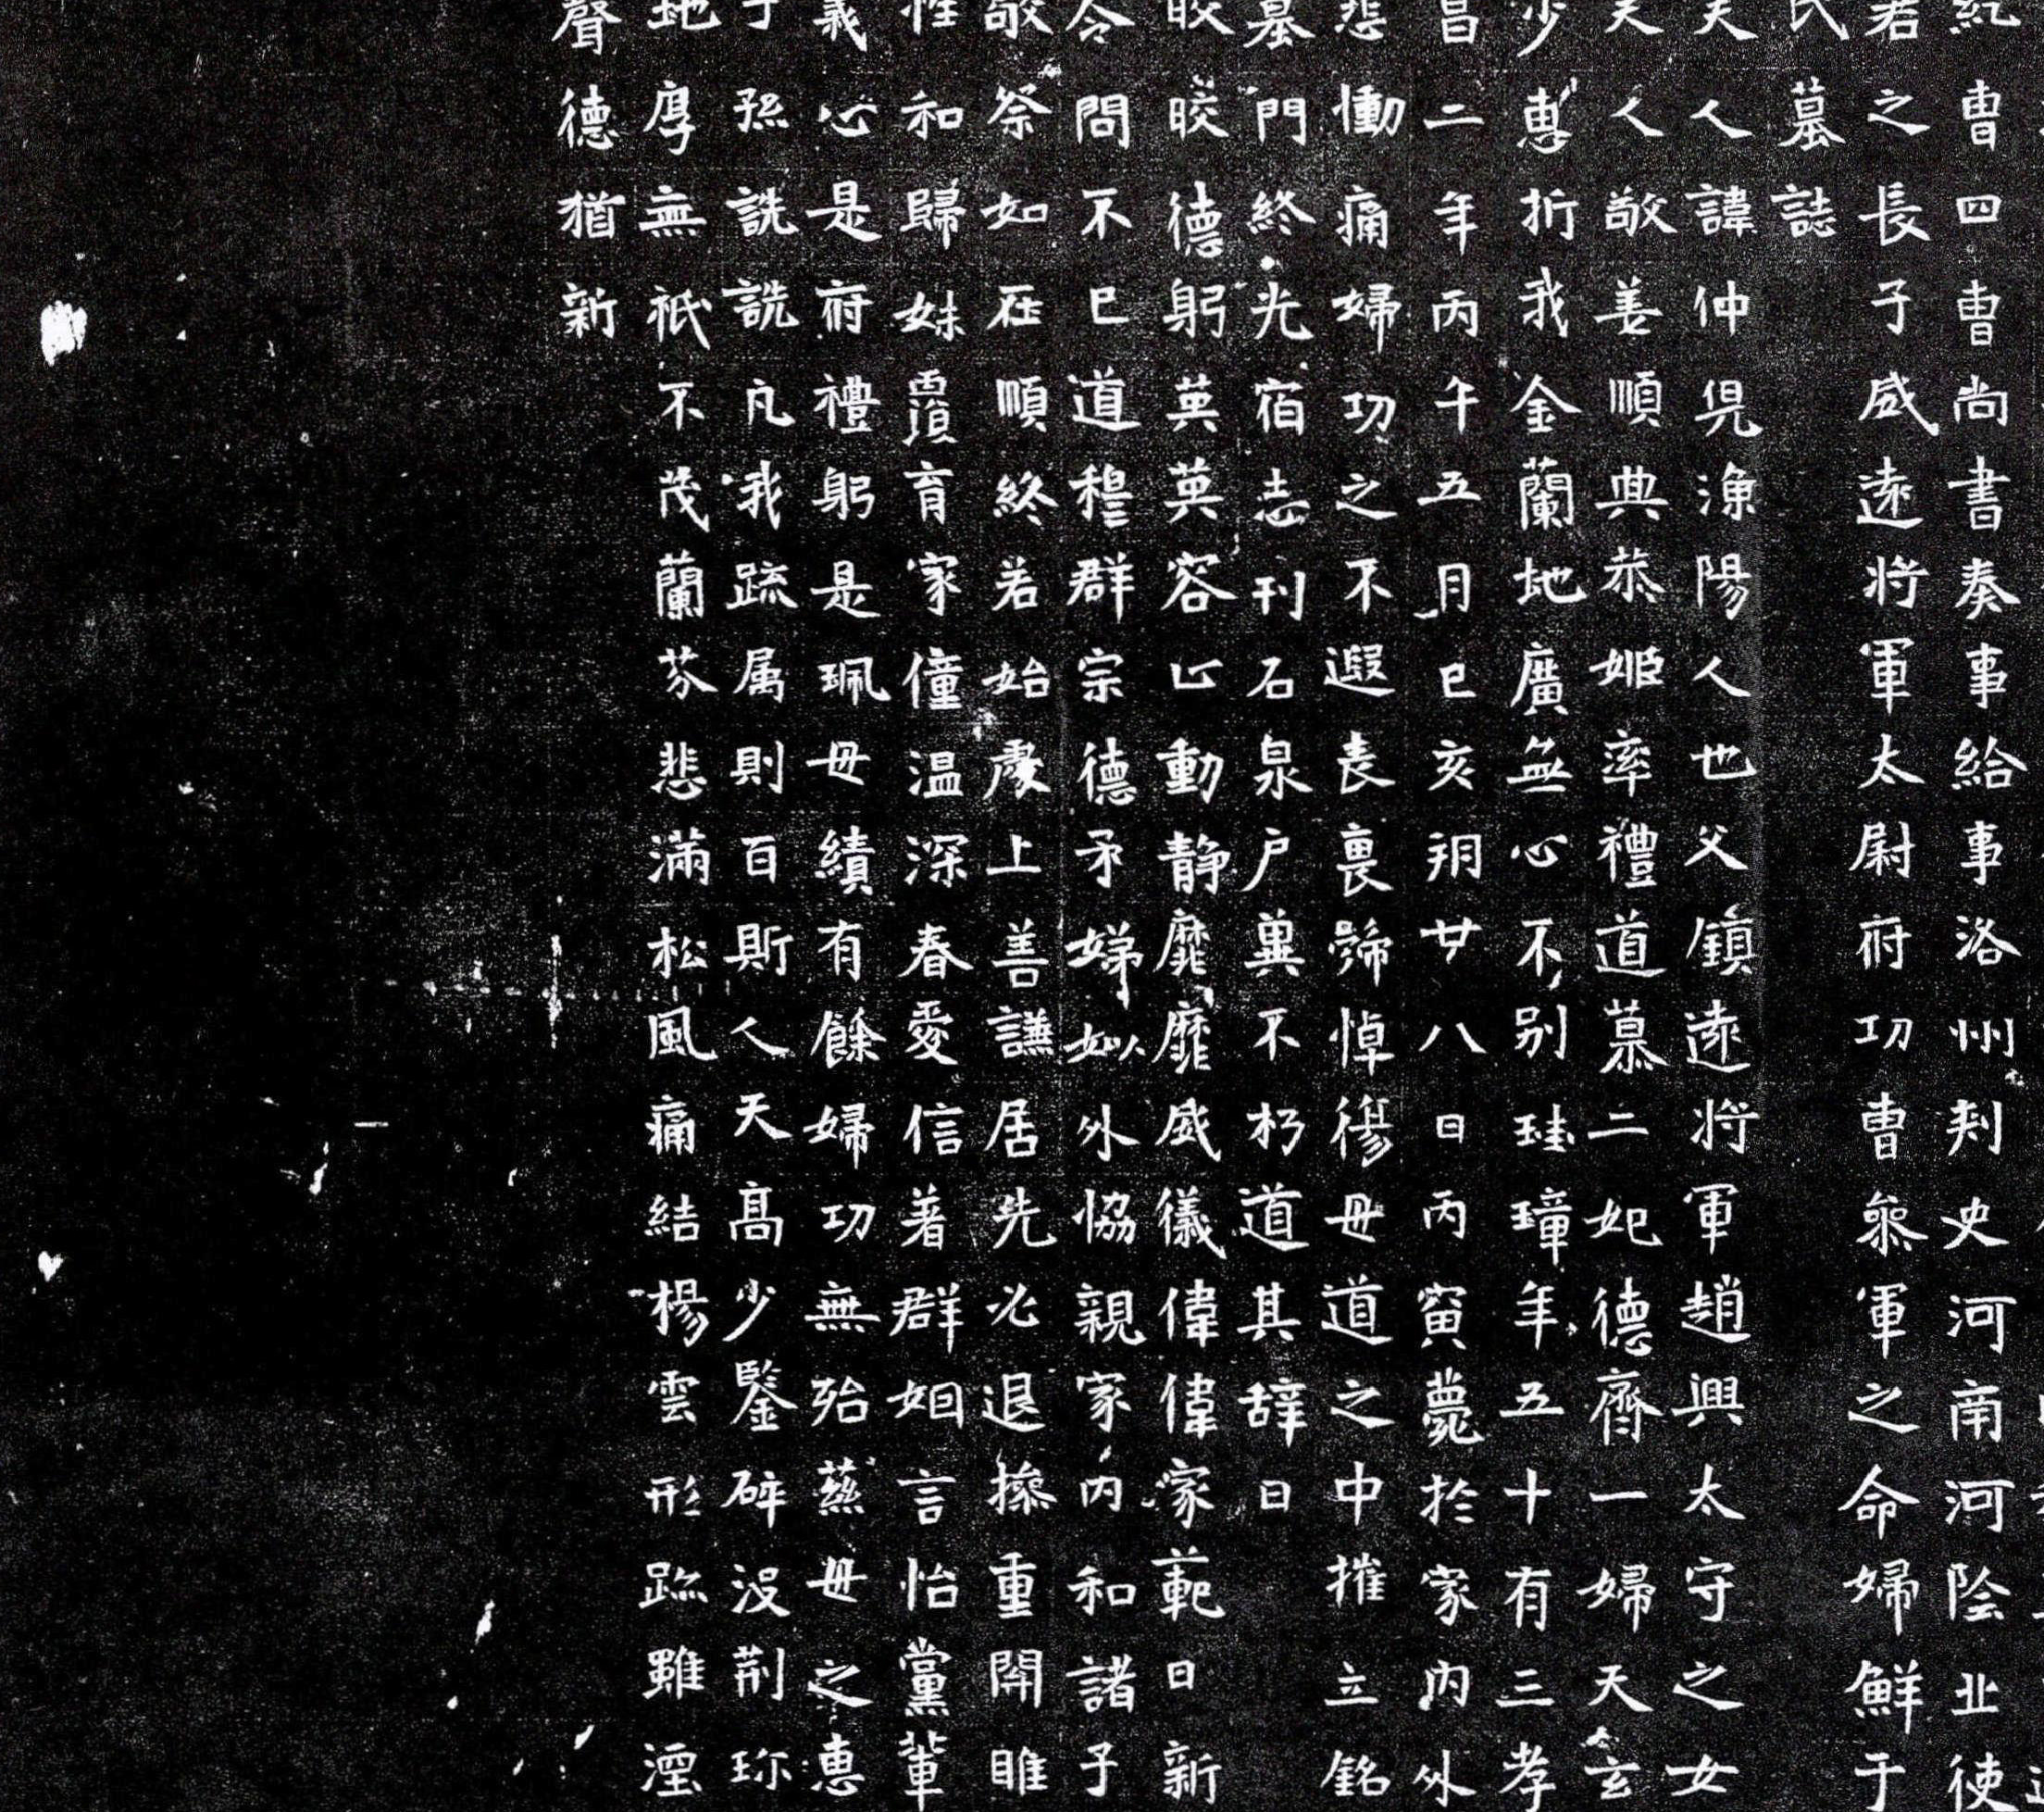 曹四曹尚書奏事給事洛州刾史河南河陰北使
君之長子威遠將軍太尉府功曹叅軍之命婦鮮于
氏墓誌
夫人諱仲兒漁陽人也父鎮遠將軍趙興太守之女
夫人敬姜順典恭姬率禮道慕二妃德齊一婦天玄
少惠折我金蘭地廣無心不別珪璋年五十有三孝
昌二年丙午五月己亥玥廿八日丙寅薨於家內外
悲慟痛婦功之不遐喪喪歸悼傷毋道之中摧立銘
墓門終光宿志刊石泉户冀不朽道其辞曰
皎皎德躬英英容止動静靡靡威儀偉偉家範日新
令問不已道穆群宗德矛娣姒外恊親家內和諸子
敬祭如在順終若始處上善謙居先必退操重開睢
性和歸妹育家僮温深春愛信著群言怡黨軰
義心是府禮躬是珮毋績有餘婦功無殆慈毋之恵
子孫詵詵凡我䟽属則百斯人天高少鑒碎没荊珎
地厚無祇不茂蘭芬悲滿松風痛結楊雲形雖湮
聲德猶新